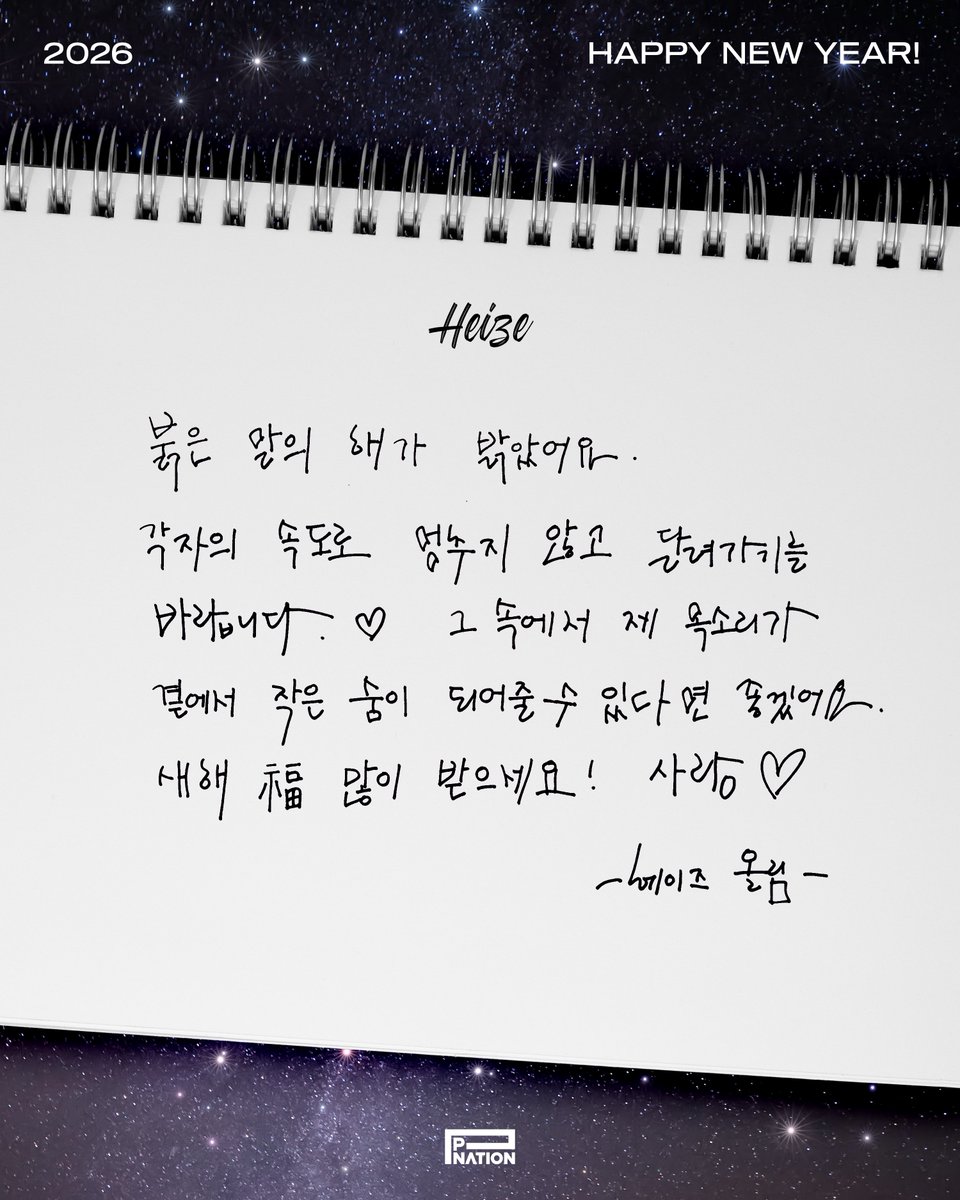 2026 HAPPY NEW YEAR!
Heize
붉은 말의 해가 밝았어요.
각자의 속도로 멈추지 않고 달려가기를
바랍니다. ♡ 그 속에서 제 목소리가
곁에서 작은 숨이 되어줄 수 있다면 좋겠어요.
새해 福 많이 받으세요! 사랑♡
-헤이즈 올림-
P NATION